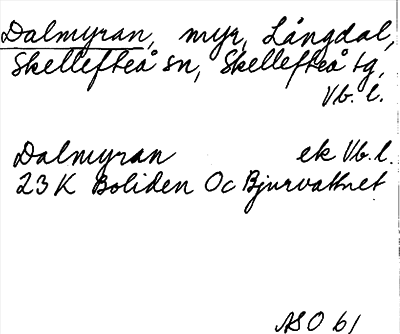 Dalmyran, myr, Långdal,
Skellefteå sn, Skellefteå tg,
Vb. l.
Dalmyran ek Vb. l.
23 K Boliden Oc Bjurvattnet
ASO 61